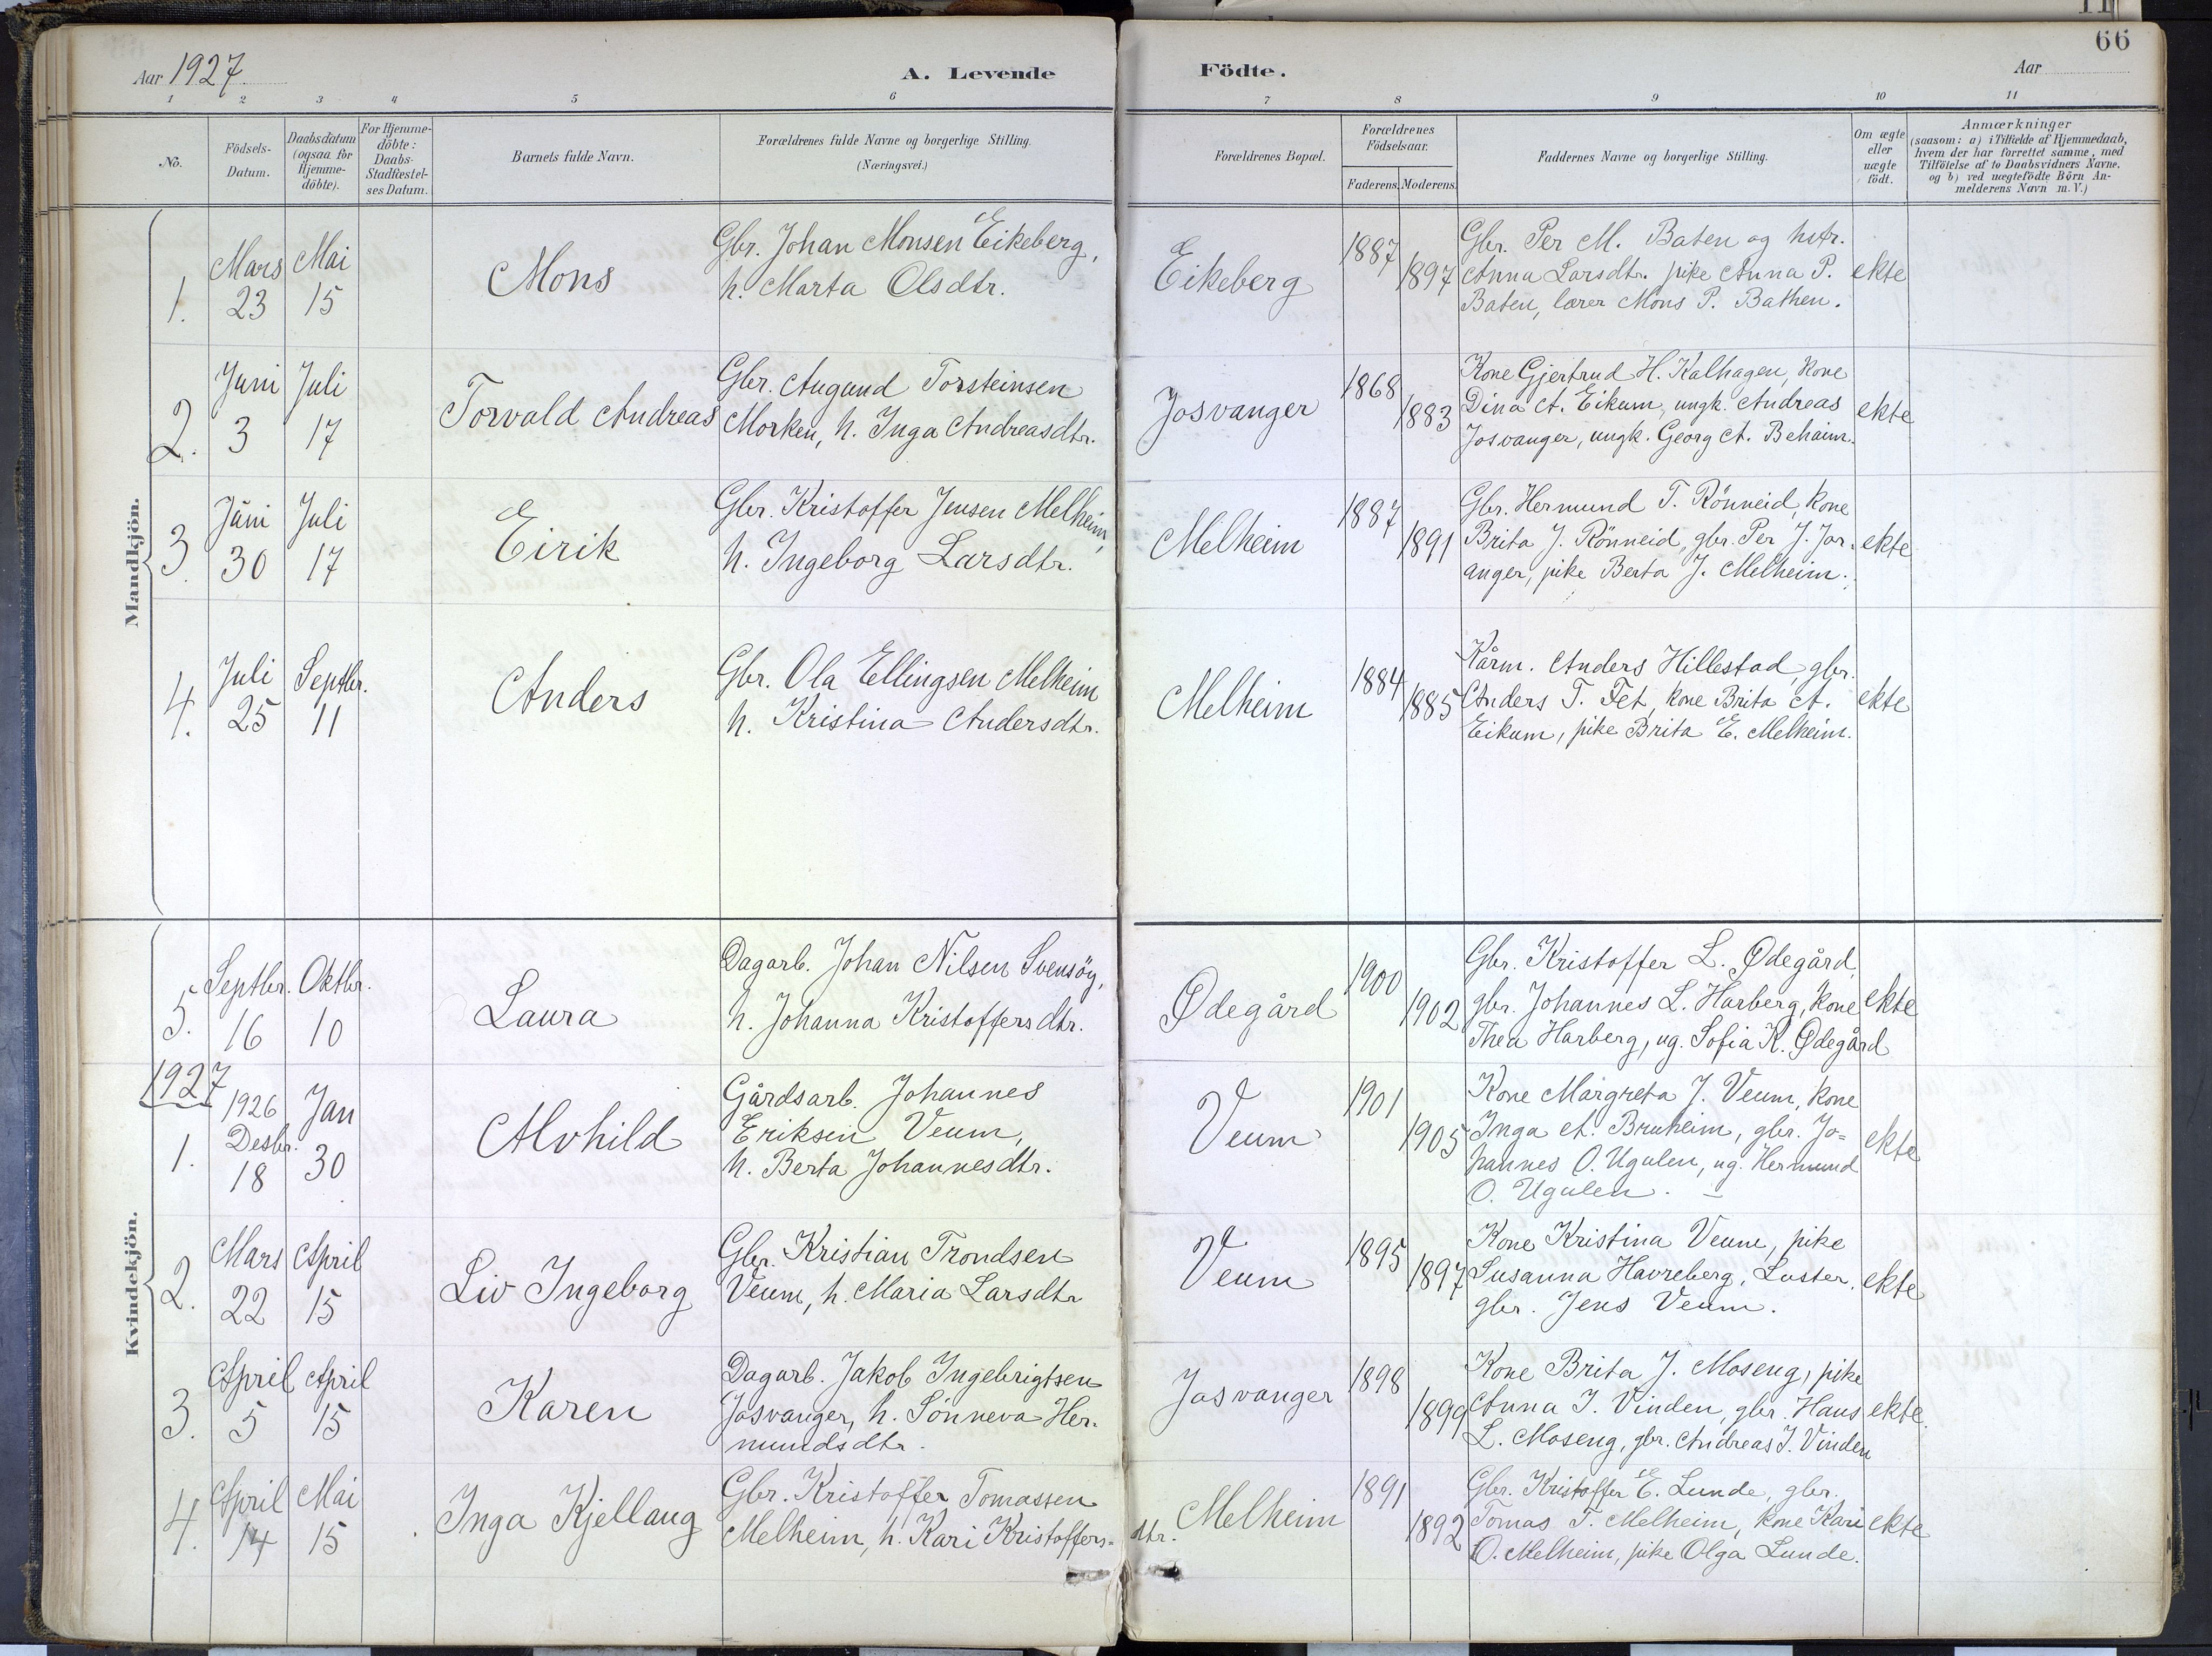 11
66
Aar 1927.
A. Levende
Födte.
Aar
1 2 3 4 5 6 7 8 9 10 11
No.
Födsels-
Datum.
Daabsdatum
(ogsaa for
Hjemme-
döbte).
For Hjemme-
döbte:
Daabs-
Stadfæstel-
ses Datum.
Barnets fulde Navn.
Forældrenes fulde Navne og borgerlige Stilling.
(Næringsvei.)
Forældrenes Bopæl.
Forældrenes
Födselsaar.
Faderens. Moderens.
Faddernes Navne og borgerlige Stilling.
Om ægte
eller
uægte
födt.
Anmærkninger
(saasom: a) i Tilfælde af Hjemmedaab,
hvem der har forrettet samme, med
Tilföielse af to Daabsvidners Navne.
og b) ved uægtefödte Börn An-
melderens Navn m. V.)
Mandkjön.
1.
Mars
23
Mai
15
Mons
Gbr. Johan Monsen Eikeberg,
h. Marta Olsdtr.
Eikeberg
1887
1897
Gbr. Per M. Baten og hstr.
Anna Larsdtr. pike Anna P.
Baten, lærer Mons P. Bathen.
ekte
2.
Juni
3
Juli
17
Torvald Andreas
Gbr. Augund Torsteinsen
Morken, h. Inga Andreasdtr.
Josvanger
1868
1883
Kone Gjertrud H. Kalhagen, kone
Dina A. Eikum, ungk. Andreas
Josvanger, ungk. Georg A. Beheim.
ekte
3.
Juni
30
Juli
17
Eirik
Gbr. Kristoffer Jensen Melheim,
h. Ingeborg Larsdtr.
Melheim
1887
1891
Gbr. Hermund T. Rönneid, kone
Brita J. Rönneid, gbr. Per J. Jos-
anger, pike Berta J. Melheim.
ekte
4.
Juli
25
Septbr.
11
Anders
Gbr. Ola Ellingsen Melheim
h. Kristina Andersdtr.
Melheim
1884
1885
Kårm. Anders Hillestad, gbr.
Anders T. Fet, kone Brita A.
Eikum, pike Brita E. Melheim.
ekte
5.
Septbr.
16
Oktbr.
10
Laura
Dagarb. Johan Nilsen Svensöy,
h. Johanna Kristoffersdtr.
Ødegård
1900
1902
Gbr. Kristoffer L. Ødegård,
gbr. Johannes L. Harberg, kone
Thea Harberg, ug. Sofia K. Ødegård
ekte
Kvindekjön.
1927
1.
1926
Desbr.
18
Jan
30
Alvhild
Gårdsarb. Johannes
Eriksen Veum,
h. Berta Johannesdtr.
Veum
1901
1905
Kone Margreta J. Veum, kone
Inga A. Bruheim, gbr. Jo=
hannes O. Ugulen, ug. Hermund
O. Ugulen.
ekte
2.
Mars
22
April
15
Liv Ingeborg
Gbr. Kristian Trondsen
Veum, h. Maria Larsdtr
Veum
1895
1897
Kone Kristina Veum, pike
Susanna Havreberg, Luster,
gbr. Jens Veum.
ekte
3.
April
5
April
15
Karen
Dagarb. Jakob Ingebrigtsen
Josvanger, h. Sönneva Her-
mundsdtr.
Josvanger
1898
1899
Kone Brita J. Moseng, pike
Anna I. Vinden, gbr. Hans
L. Moseng, gbr. Andreas I. Vinden
ekte.
4.
April
14
Mai
15
Inga Kjellaug
Gbr. Kristoffer Tomassen
Melheim, h. Kari Kristoffers=
dtr.
Melheim
1891
1892
Gbr. Kristoffer E. Lunde, gbr.
Tomas T. Melheim, kone Kari
O. Melheim, pike Olga Lunde.
ekte